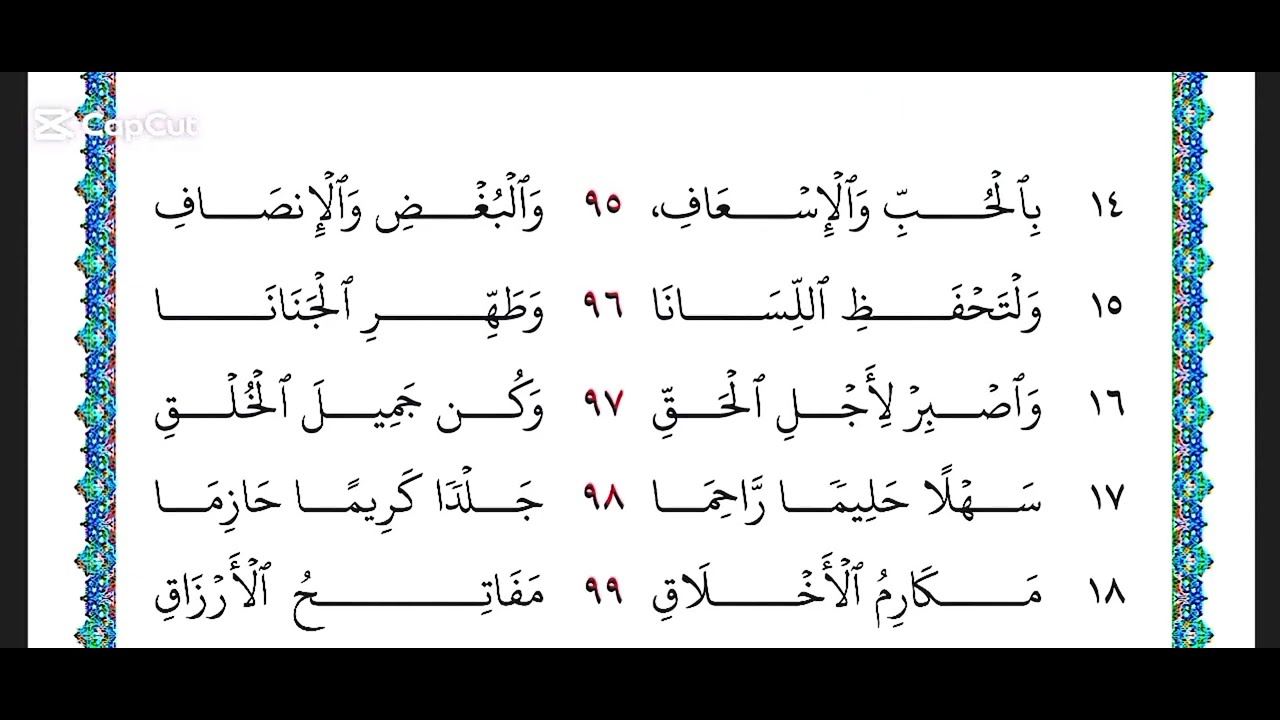 CapCut
١٤ بِٱلْحُبِّ وَٱلْإِسْعَافِ، ٩٥ وَٱلْبُغْضِ وَٱلْإِنصَافِ
١٥ وَلْتَحْفَظِ ٱللِّسَانَا ٩٦ وَطَهِّرِ ٱلْجَنَانَا
١٦ وَٱصْبِرْ لِأَجْلِ ٱلْحَقِّ ٩٧ وَكُن جَمِيلَ ٱلْخُلْقِ
١٧ سَهْلًا حَلِيمَا رَّاحِمَا ٩٨ جَلْدَا كَرِيمًا حَازِمَا
١٨ مَكَارِمُ ٱلْأَخْلَاقِ ٩٩ مَفَاتِحُ ٱلْأَرْزَاقِ